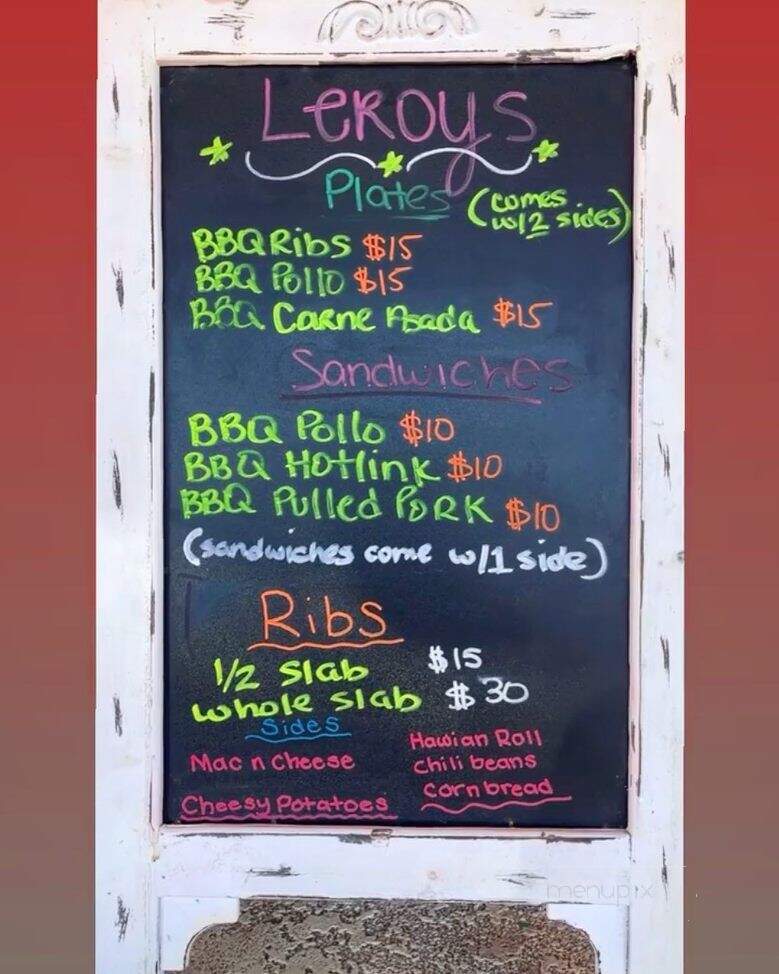 LeRoys
Plates (comes w/2 sides)
BBQ Ribs $15
BBQ Pollo $15
BBQ Carne Asada $15
Sandwiches
BBQ Pollo $10
BBQ Hotlink $10
BBQ Pulled Pork $10
(sandwiches come w/1 side)
Ribs
1/2 Slab $15
whole slab $30
Sides
Mac n Cheese
Cheesy Potatoes
Hawian Roll
chili beans
corn bread
menupix